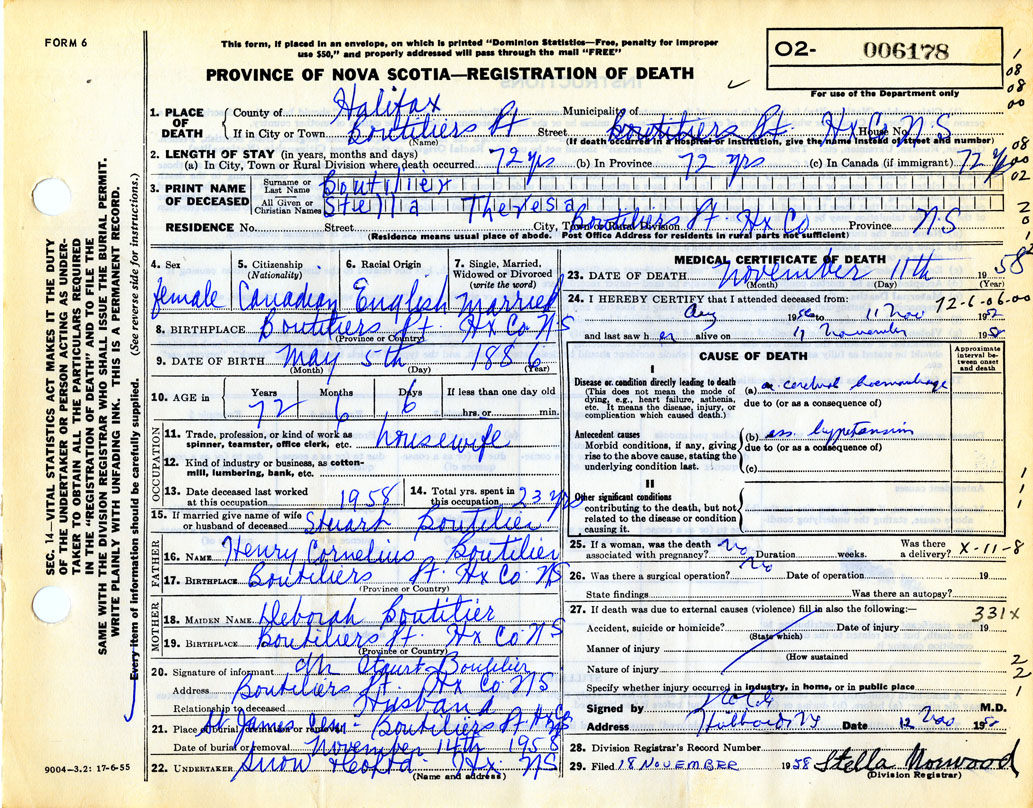 FORM 6
This form, if placed in an envelope, on which is printed "Dominion Statistics—Free, penalty for improper
use $50," and properly addressed will pass through the mail "FREE"
PROVINCE OF NOVA SCOTIA—REGISTRATION OF DEATH
02- 006178
For use of the Department only
1
08
08
00
08
00
02
SEC. 14—VITAL STATISTICS ACT MAKES IT THE DUTY
OF THE UNDERTAKER OR PERSON ACTING AS UNDER-
TAKER TO OBTAIN ALL THE PARTICULARS REQUIRED
IN THE "REGISTRATION OF DEATH" AND TO FILE THE
SAME WITH THE DIVISION REGISTRAR WHO SHALL ISSUE THE BURIAL PERMIT.
WRITE PLAINLY WITH UNFADING INK. THIS IS A PERMANENT RECORD.
Every item of information should be carefully supplied. (See reverse side for instructions.)
1. PLACE OF DEATH County of Halifax Municipality of
If in City or Town Boutiliers Pt Street Boutiliers Pt. Hx Co N.S House No.
(Name) (If death occurred in a Hospital or Institution, give the name instead of street and number)
2. LENGTH OF STAY (in years, months and days)
(a) In City, Town or Rural Division where death occurred 72 yrs (b) In Province 72 yrs (c) In Canada (if immigrant) 72 yrs
3. PRINT NAME OF DECEASED Surname or Last Name Boutilier
All Given or Christian Names Stella Theresa
RESIDENCE No. Street City, Town or Rural Division Boutiliers Pt. Hx Co Province NS
(Residence means usual place of abode. Post Office Address for residents in rural parts not sufficient)
4. Sex 5. Citizenship (Nationality) 6. Racial Origin 7. Single, Married, Widowed or Divorced (write the word)
female Canadian English Married
8. BIRTHPLACE Boutiliers Pt. Hx Co N-S
(Province or Country)
9. DATE OF BIRTH May 5th 1886
(Month) (Day) (Year)
10. AGE in Years Months Days If less than one day old
72 6 6 hrs. or min.
OCCUPATION
11. Trade, profession, or kind of work as spinner, teamster, office clerk, etc. housewife
12. Kind of industry or business, as cotton-mill, lumbering, bank, etc.
13. Date deceased last worked at this occupation 1958 14. Total yrs. spent in this occupation 23 yrs
15. If married give name of wife or husband of deceased Stuart Boutilier
FATHER
16. NAME Henry Cornelius Boutilier
17. BIRTHPLACE Boutiliers Pt. Hx Co. NS
(Province or Country)
MOTHER
18. MAIDEN NAME Deborah Boutilier
19. BIRTHPLACE Boutiliers Pt. Hx Co NS
(Province or Country)
20. Signature of informant Stuart Boutilier
Address Boutiliers Pt. Hx Co NS
Relationship to deceased Husband
21. Place of burial, cremation or removal St James Cem- Boutiliers Pt Hx Co NS
Date of burial or removal November 14th 1958
22. UNDERTAKER Snow & Co Ltd Hx NS
(Name and address)
9004—3.2: 17-6-55
MEDICAL CERTIFICATE OF DEATH
23. DATE OF DEATH November 11th 1958
(Month) (Day) (Year)
24. I HEREBY CERTIFY that I attended deceased from: 72-6-06-00
Aug 1956 to 11 Nov 1958
and last saw her alive on 11 November 1958
CAUSE OF DEATH
Approximate interval between onset and death
I
Disease or condition directly leading to death
(This does not mean the mode of dying, e.g., heart failure, asthenia, etc. It means the disease, injury, or complication which caused death.)
(a) cerebral haemorrhage
due to (or as a consequence of)
Antecedent causes
Morbid conditions, if any, giving rise to the above cause, stating the underlying condition last.
(b) ess. hypertension
due to (or as a consequence of)
(c)
II
Other significant conditions
contributing to the death, but not related to the disease or condition causing it.
25. If a woman, was the death associated with pregnancy? No Duration weeks. Was there a delivery? X-11-8
26. Was there a surgical operation? No Date of operation 19
State findings Was there an autopsy?
27. If death was due to external causes (violence) fill in also the following:— 331x
Accident, suicide or homicide? Date of injury 19
(State which)
Manner of injury
(How sustained
Nature of injury
Specify whether injury occurred in industry, in home, or in public place
Signed by M.D.
Address Date 12 Nov 1958
28. Division Registrar's Record Number
29. Filed 18 NOVEMBER 1958 Stella Norwood
(Division Registrar)